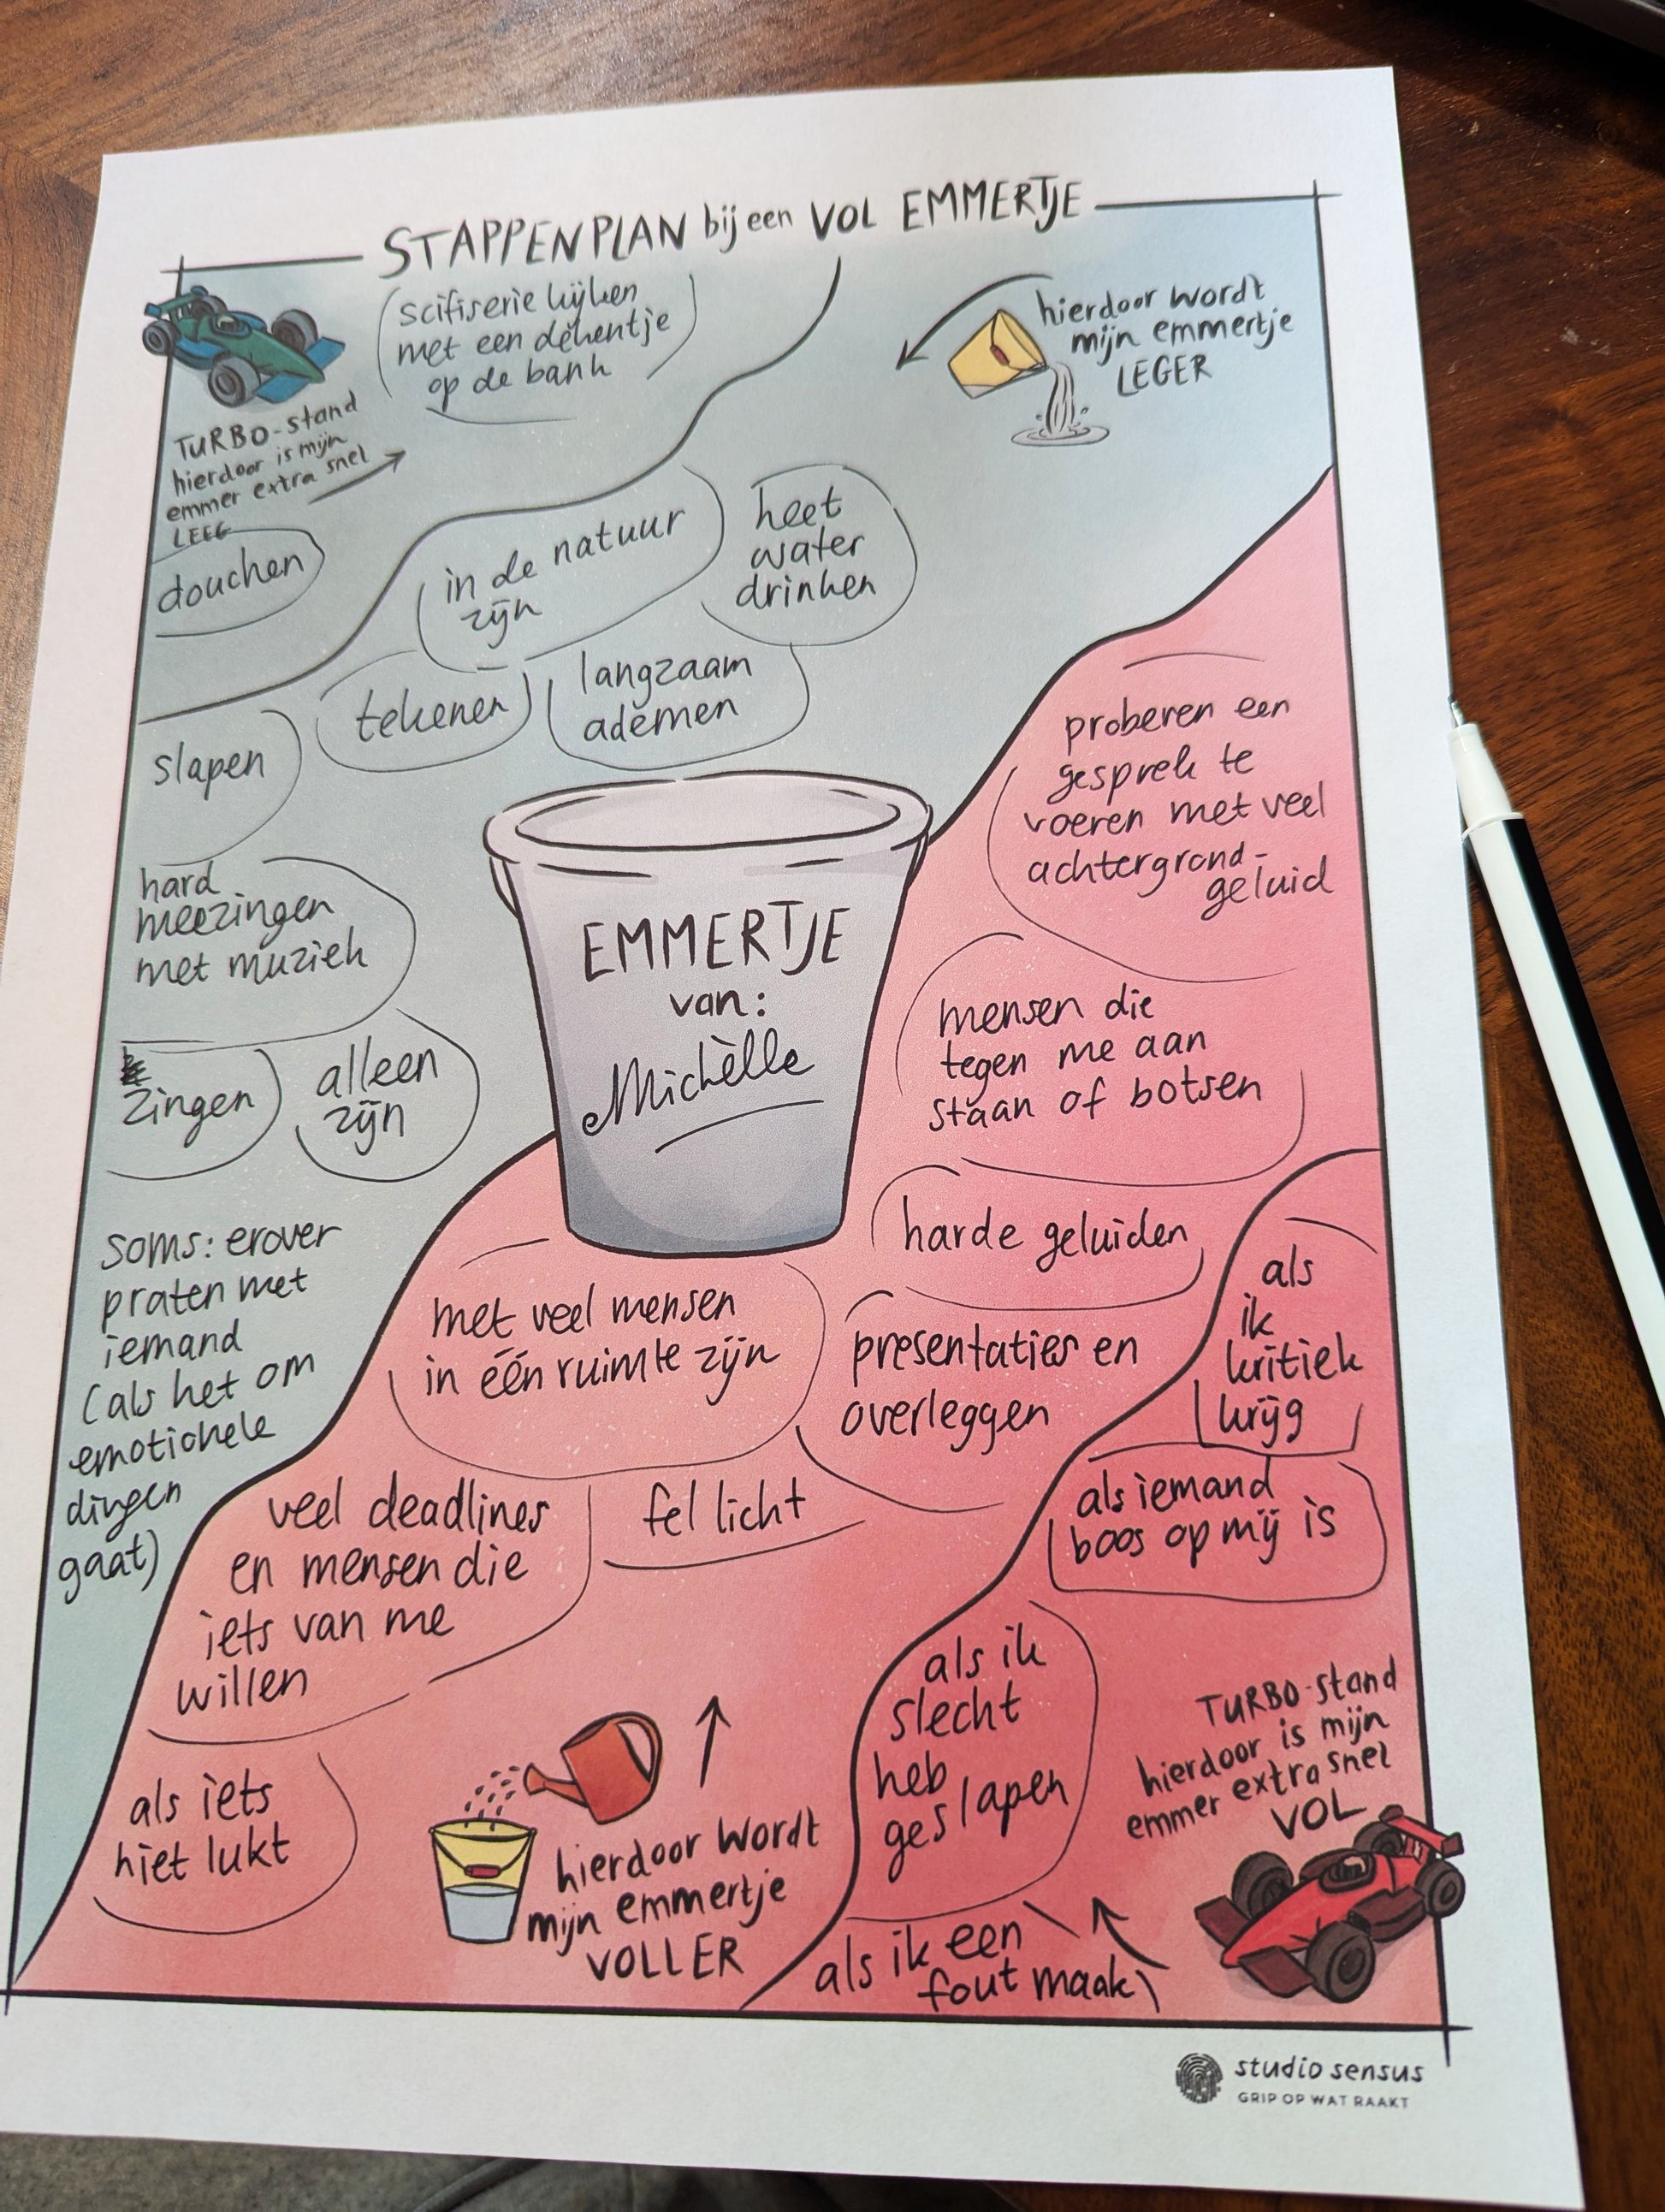 STAPPENPLAN bij een VOL EMMERTJE
scifiserie kijken
met een dekentje
op de bank
hierdoor wordt
mijn emmertje
LEGER
TURBO-stand
hierdoor is mijn
emmer extra snel
LEEG
douchen
in de natuur
zijn
heet
water
drinken
tekenen
langzaam
ademen
slapen
hard
meezingen
met muziek
zingen
alleen
zijn
soms: erover
praten met
iemand
(als het om
emotionele
dingen
gaat)
EMMERTJE
van:
Michèlle
proberen een
gesprek te
voeren met veel
achtergrond-
geluid
mensen die
tegen me aan
staan of botsen
harde geluiden
met veel mensen
in één ruimte zijn
presentaties en
overleggen
als
ik
kritiek
krijg
als iemand
boos op mij is
veel deadlines
en mensen die
iets van me
willen
fel licht
als ik
slecht
heb
geslapen
als iets
niet lukt
hierdoor wordt
mijn emmertje
VOLLER
als ik een
fout maak
TURBO-stand
hierdoor is mijn
emmer extra snel
VOL
studio sensus
GRIP OP WAT RAAKT